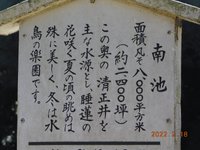 南池
面積凡そ八、〇〇〇平方米
（約二、四〇〇坪）
この奥の清正井を
主な水源とし、睡蓮の
花咲く夏の頃の眺めは
殊に美しく、冬は水
鳥の楽園です。
2022.2.18